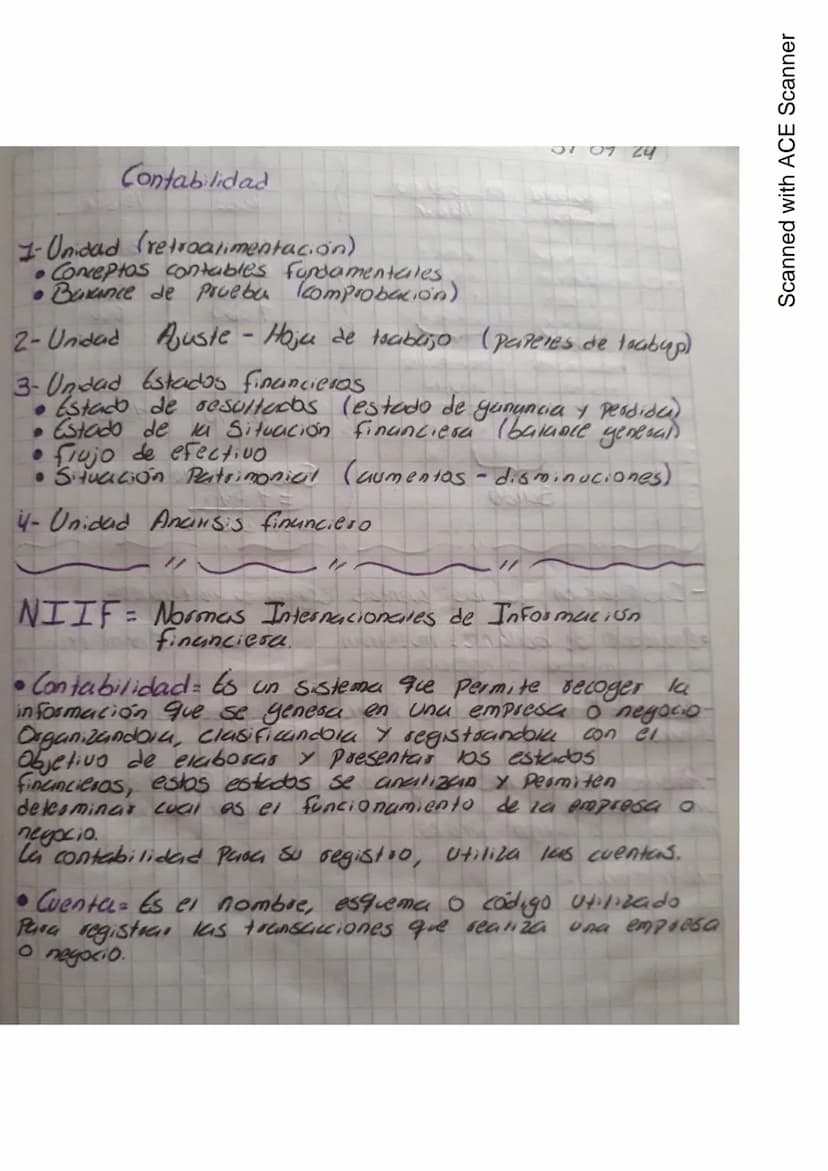 Contabilidad
1- Unidad (retroalimentación)
• Conceptos contables fundamentales
• Balance de Prueba (comprobación)
2- Unidad Ajuste - Hoja de trabajo (Papeles de trabajo)
3- Unidad Estados financieros
• Estado de resultados (estado de ganancia y perdida)
• Estado de la Situación financiera (balance general)
• flujo de efectivo
• Situación Patrimonial (aumentos - disminuciones)
4- Unidad Analisis financiero
NIIF = Normas Internacionales de Información
financiera.
• Contabilidad = Es un sistema que permite recoger la
información que se genera en una empresa o negocio
Organizandola, clasificandola y registrandola con el
Objetivo de elaborar y Presentar los estados
financieros, estos estados se analizan y permiten
determinar cual es el funcionamiento de la empresa o
negocio.
La contabilidad Para su registro, utiliza las cuentas.
• Cuenta = Es el nombre, esquema o código utilizado
Para registrar las transacciones que realiza una empresa
o negocio.
Scanned with ACE Scanner